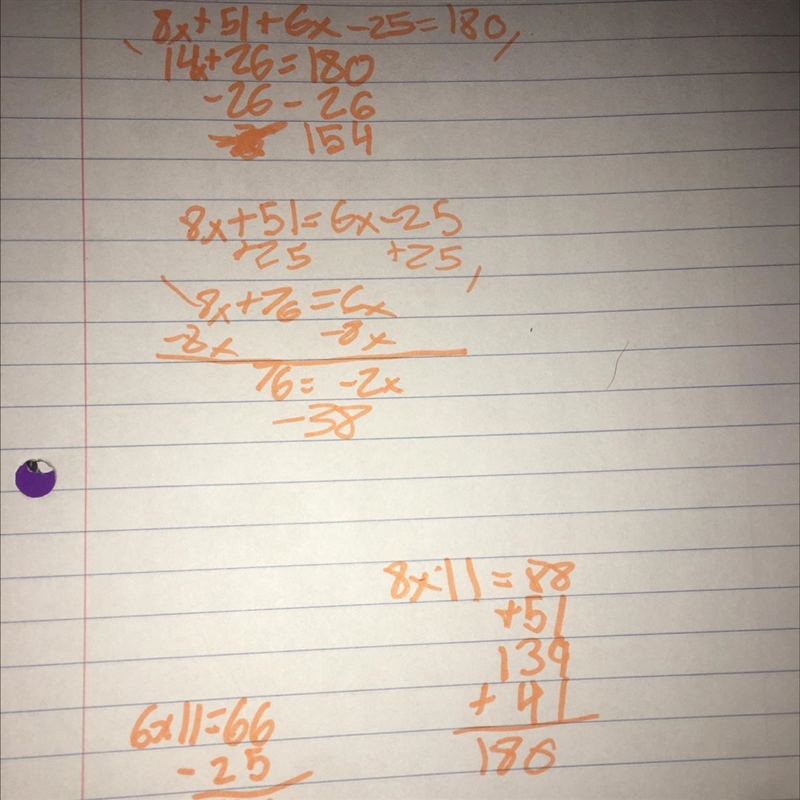 8x+51+6x-25=180
14x+26=180
-26 -26
154
8x+51=6x-25
+25 +25
8x+76=6x
-8x -8x
76=-2x
-38
8x·11=88
+51
139
+41
180
6x11=66
-25